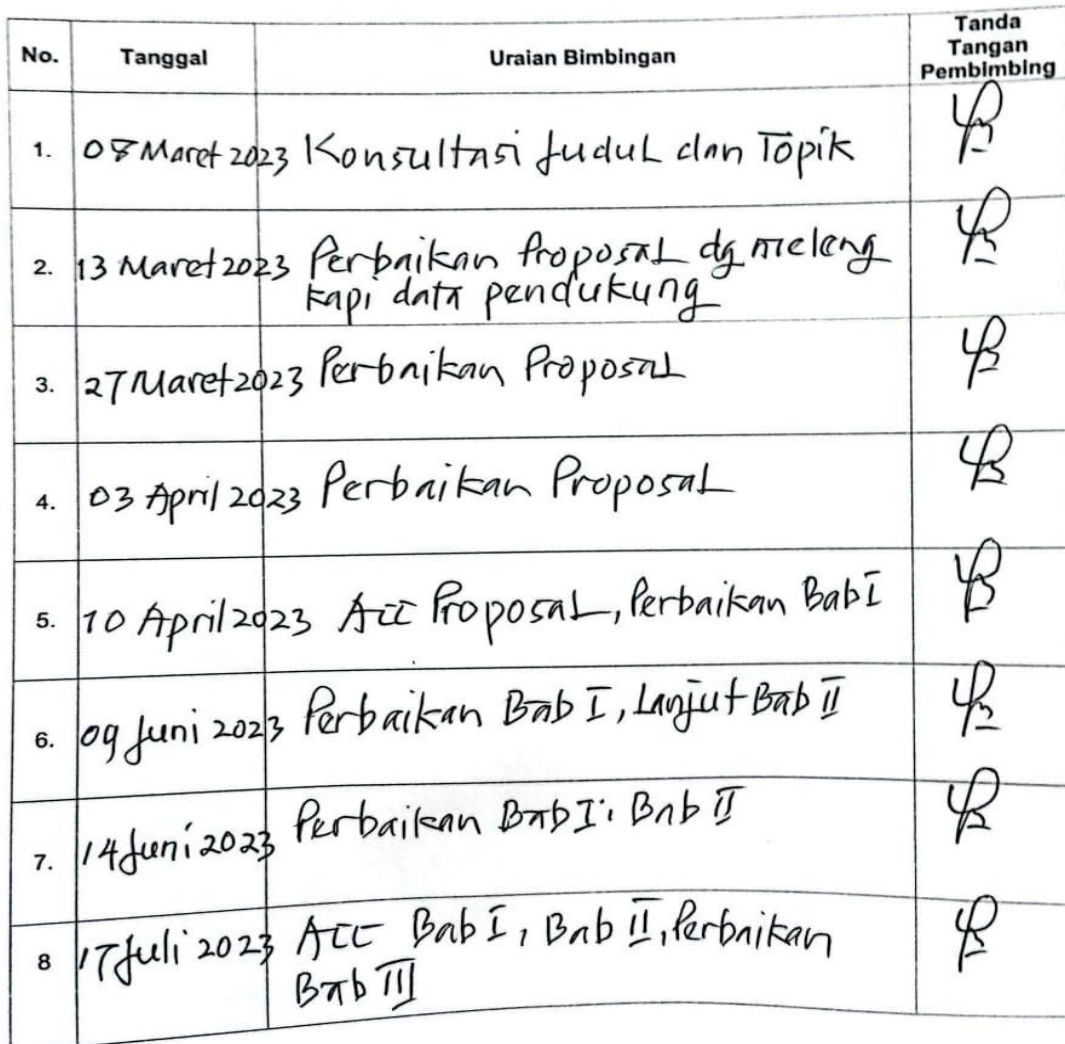 No. Tanggal Uraian Bimbingan Tanda Tangan Pembimbing
1. 08 Maret 2023 Konsultasi Judul dan Topik
2. 13 Maret 2023 Perbaikan Proposal dg meleng
kapi data pendukung
3. 27 Maret 2023 Perbaikan Proposal
4. 03 April 2023 Perbaikan Proposal
5. 10 April 2023 Acc Proposal, Perbaikan Bab I
6. 09 Juni 2023 Perbaikan Bab I, Lanjut Bab II
7. 14 Juni 2023 Perbaikan Bab I, Bab II
8 17 Juli 2023 Acc Bab I, Bab II, Perbaikan
Bab III